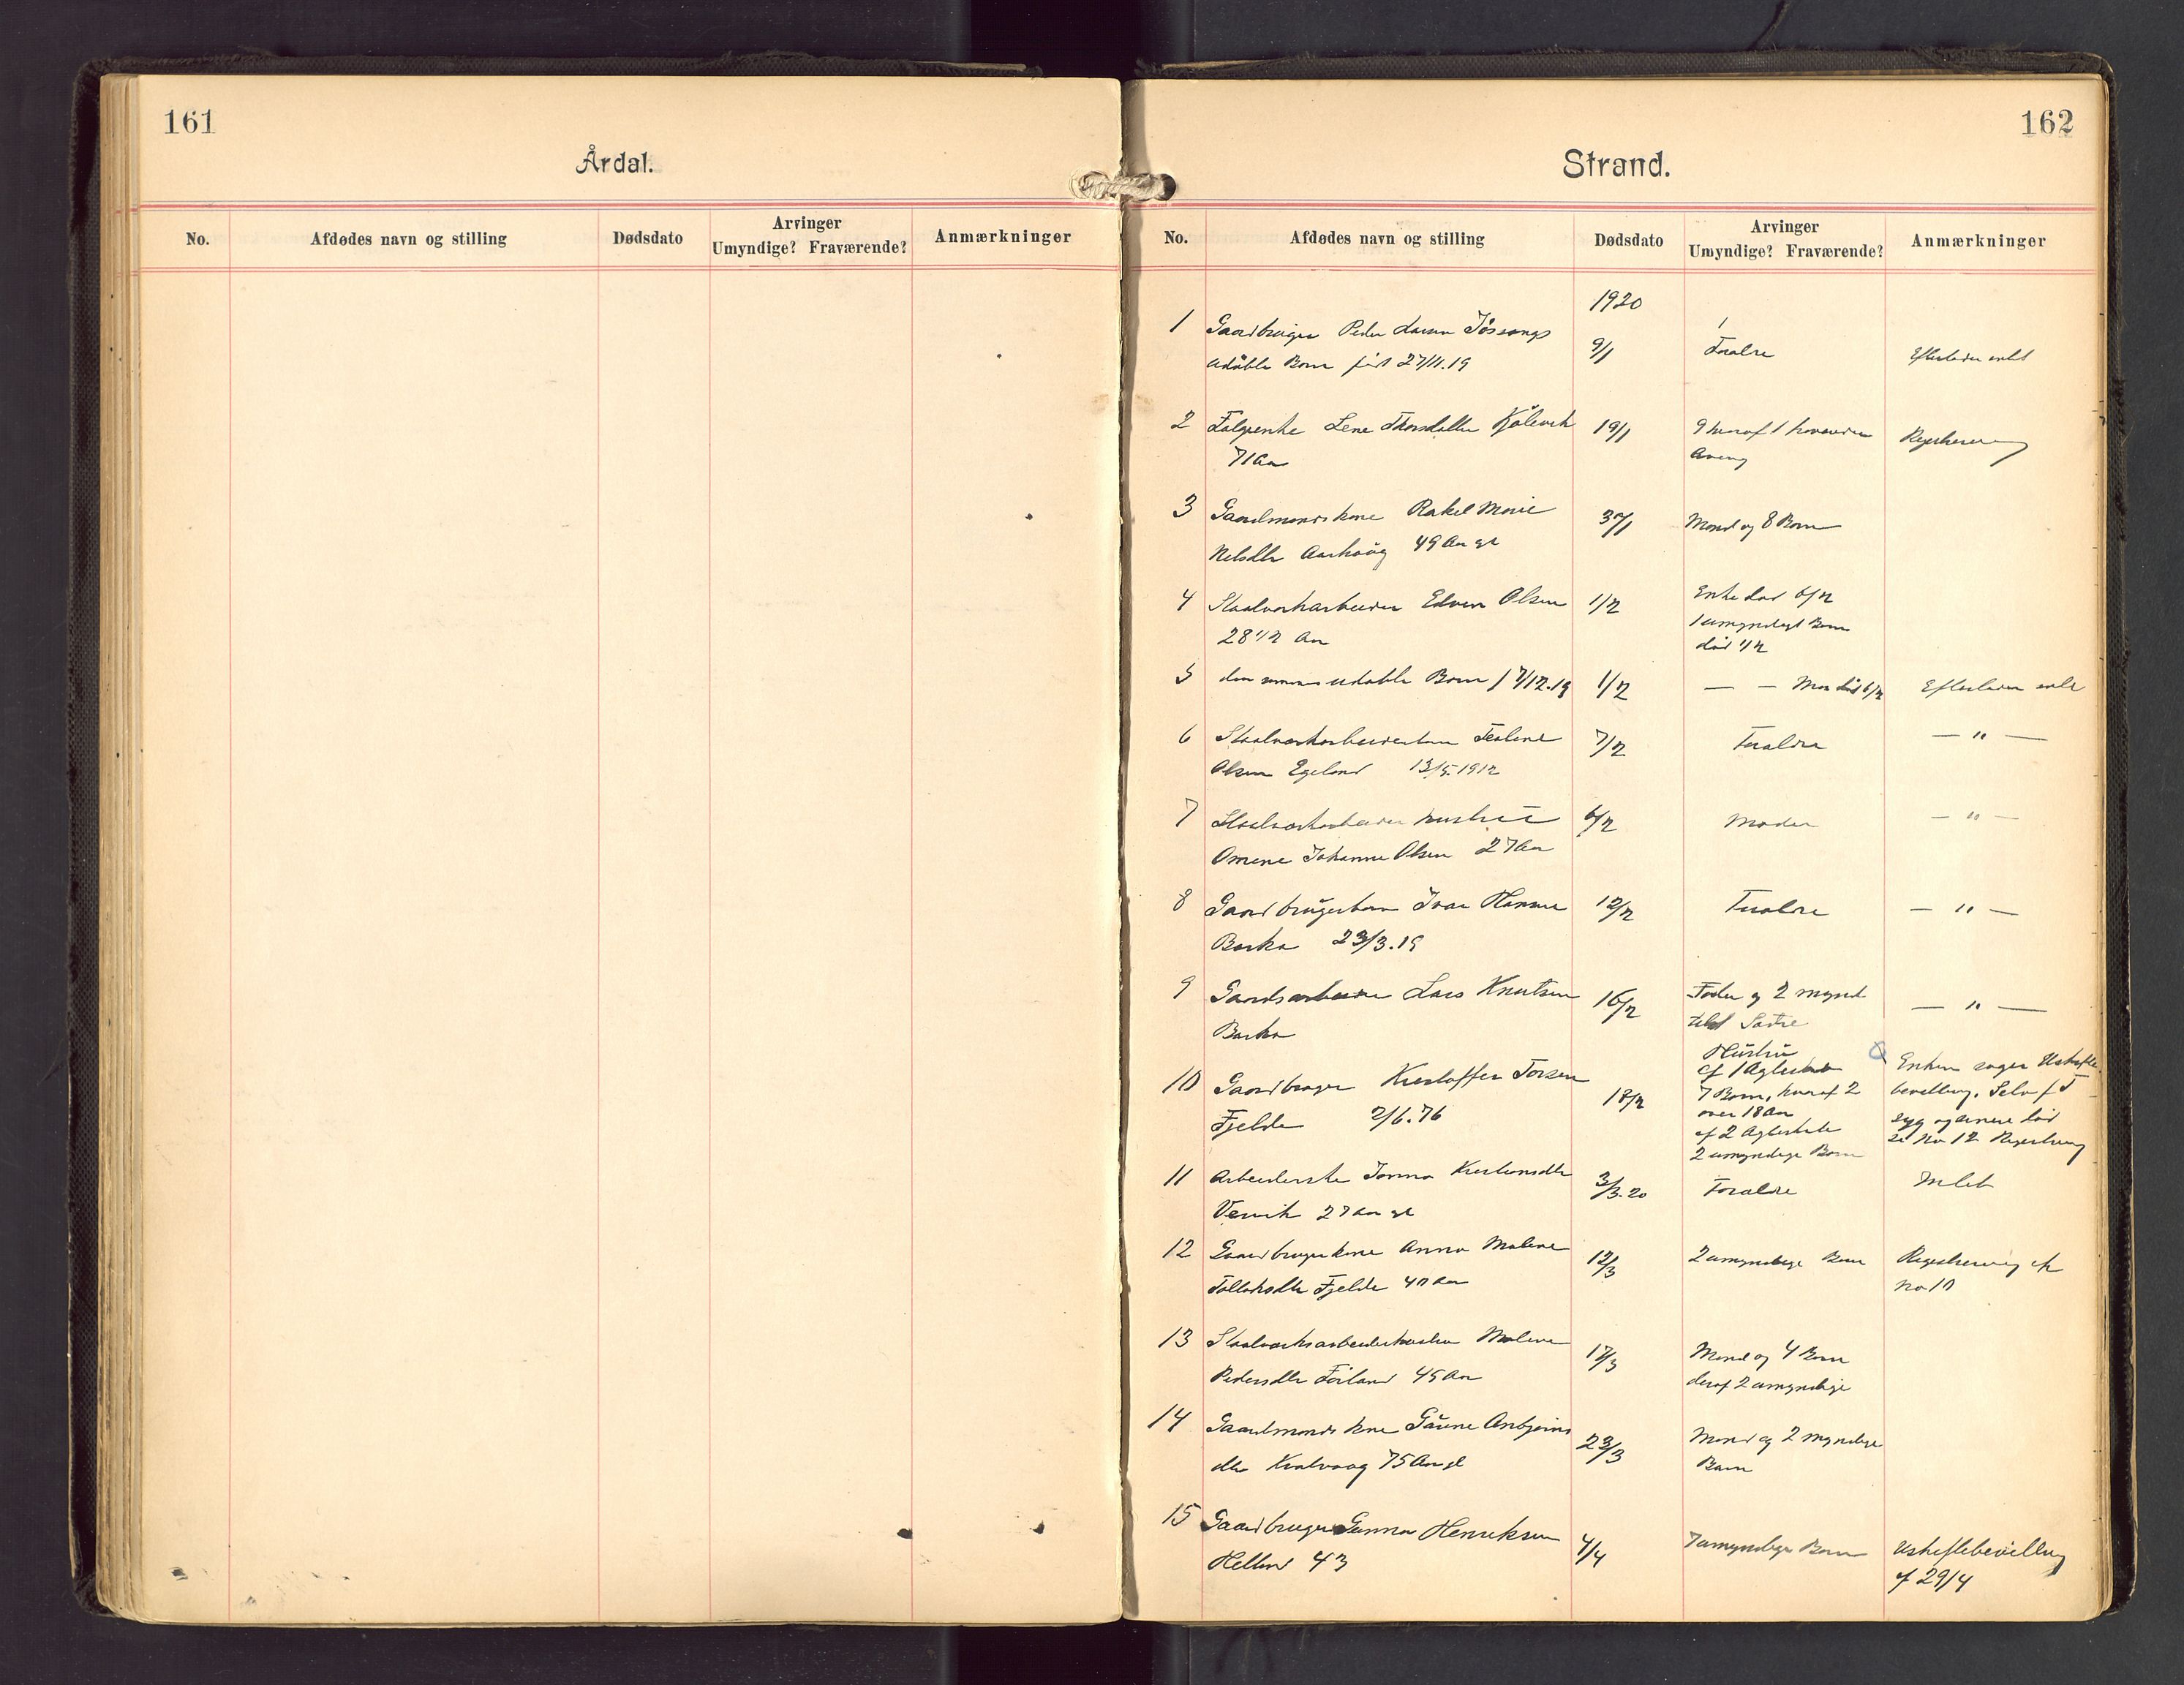 161
Årdal.
No.
Afdødes navn og stilling
Dødsdato
Arvinger
Umyndige? Fraværende?
Anmærkninger
162
Strand.
No.
Afdødes navn og stilling
Dødsdato
Arvinger
Umyndige? Fraværende?
Anmærkninger
1920
1 Gaardbruger Peder Larsen Jøssangs
udøbte Barn født 27/11.19
9/1
Foraldre
2 Lene Kjølevik
71 Aar
19/1
9 hvoraf 1
Registrering
3 Gaardmandskone Rakel Marie
Nelsdtr 49 Aar gl
Mand og 8 Born
4 Staalverkarbeider Edvin Olsen
28 1/2 Aar
1/2
Enke død 6/2
1 umyndigt Barn
død 1/2
5 den sammes udøbte Barn f 7/12.19
1/2
— — Mor død 6/2
6 Staalverkarbeiderbarn
Olsen Egeland 13/5.1912
7/2
Foraldre
— " —
7 Staalverkarbeider hustru
Omine Johanne Olsen 27 Aar
6/2
Moder
— " —
8 Gaardbrugerbarn Ivar Hanner
Barka 23/3.19
12/2
Foraldre
— " —
9 Gaardsarbeider Lars Knutsen
Barka
16/2
Fader og 2 mynd
— " —
10 Gaardbruger Kristoffer Torsen
Fjelde 2/6.76
18/2
Hustru
af 1 Agteskab
7 Born, hvoraf 2
over 18 Aar
af 2 Agteskab
2 umyndige Born
Enken søger Uskifte
bevilling. Selv
syg og senere død
se No 12 Registrering
11 Kristiansdtr
27 Aar gl
3/3.20
Foraldre
Intet
12 Gaardbrugerkone Anna Malene
Fjelde 40 Aar
12/3
2 umyndige Born
Registrering cfr
No 10
13 Staalverksarbeiderhustru Malene
Pedersdtr 45 Aar
17/3
Mand og 4 Born
deraf 2 umyndige
14 Gaardmands kone
dtr Kvalvaag 75 Aar gl
23/3
Mand og 2 myndige
Barn
15 Gaardbruger Gunnar Henriksen
Helland 43
4/4
7 umyndige Born
Uskiftebevilling
af 29/4